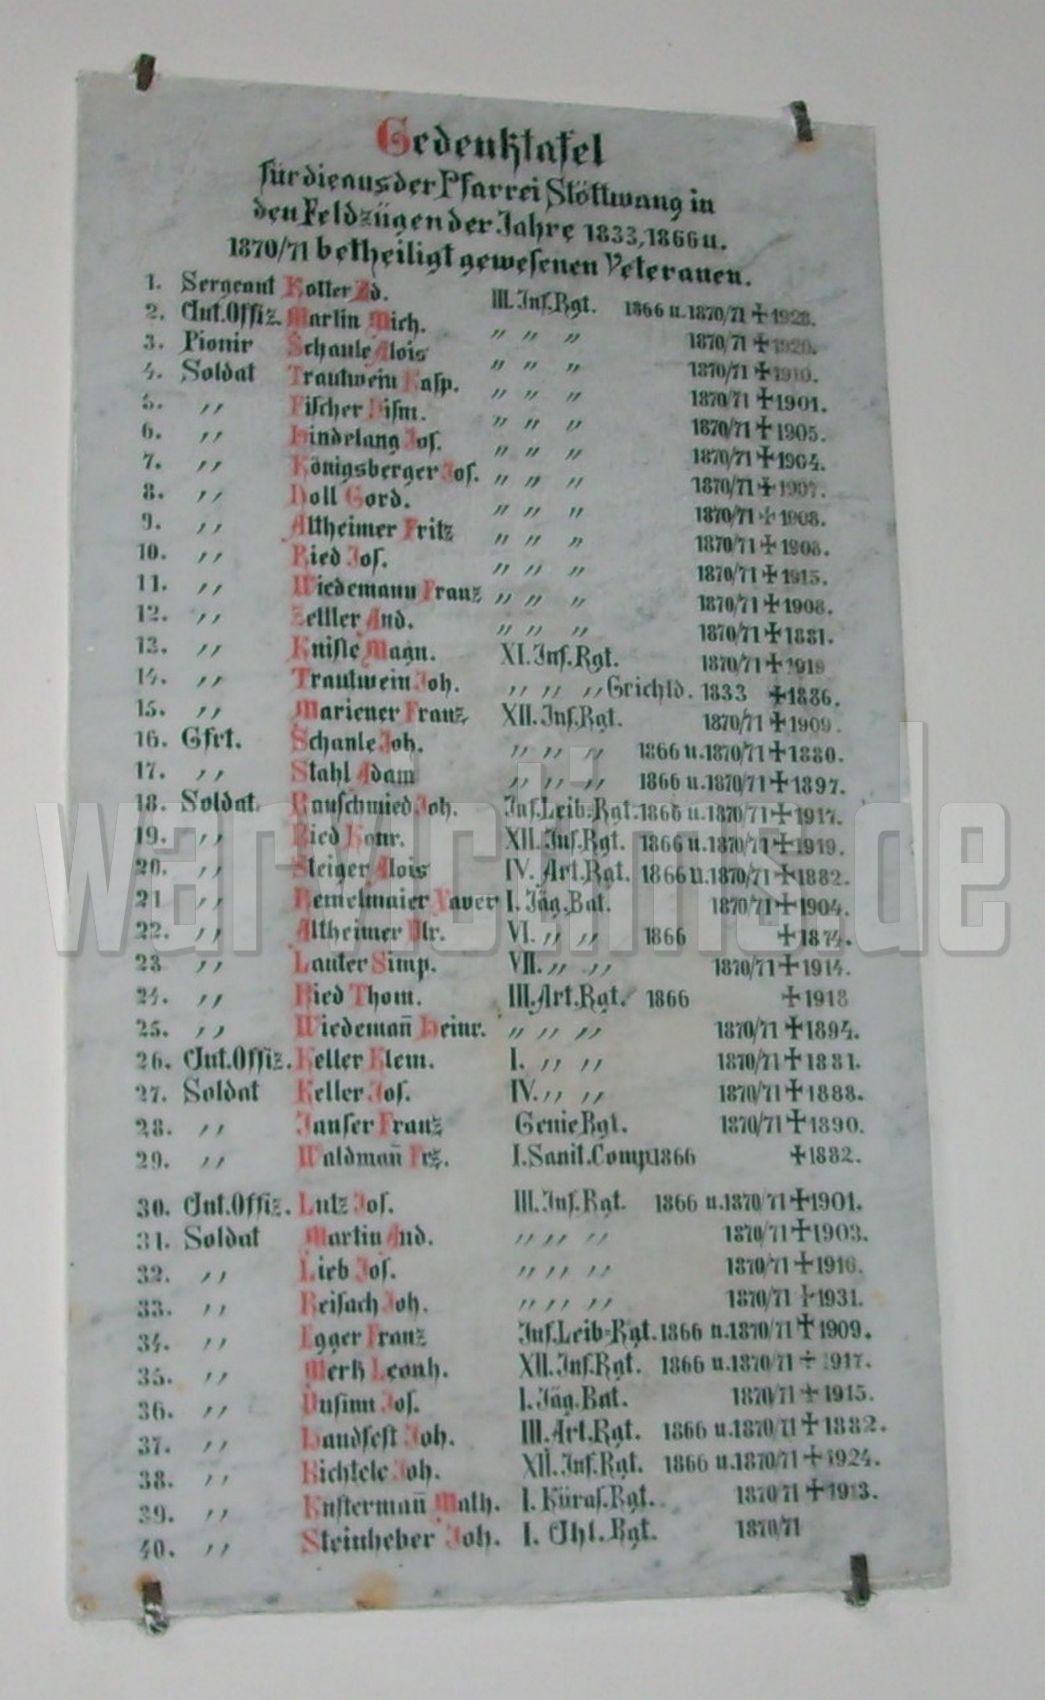 Gedenktafel
für die aus der Pfarrei Stöttwang in
den Feldzügen der Jahre 1833, 1866 u.
1870/71 betheiligt gewesenen Veteranen.
1. Sergeant Kotter Ad. III. Inf. Rgt. 1866 u. 1870/71 ✝ 1928.
2. Unt. Offiz. Martin Mich. " " " 1870/71 ✝ 1920.
3. Pionir Schaule Alois " " " 1870/71 ✝ 1910.
4. Soldat Trautwein Kasp. " " " 1870/71 ✝ 1901.
5. " Fischer Dism. " " " 1870/71 ✝ 1905.
6. " Hindelang Jos. " " " 1870/71 ✝ 1904.
7. " Königsberger Jos. " " " 1870/71 ✝ 1907.
8. " Doll Gord. " " " 1870/71 ✝ 1908.
9. " Altheimer Fritz " " " 1870/71 ✝ 1908.
10. " Ried Jos. " " " 1870/71 ✝ 1915.
11. " Wiedemann Franz " " " 1870/71 ✝ 1908.
12. " Zettler And. " " " 1870/71 ✝ 1881.
13. " Knisle Magn. XI. Inf. Rgt. 1870/71 ✝ 1919
14. " Trautwein Joh. " " " Grichld. 1833 ✝ 1886.
15. " Mariener Franz XII. Inf. Rgt. 1870/71 ✝ 1909.
16. Gfrt. Schanle Joh. " " " 1866 u. 1870/71 ✝ 1880.
17. " Stahl Adam " " " 1866 u. 1870/71 ✝ 1897.
18. Soldat Rauschmied Joh. Inf. Leib-Rgt. 1866 u. 1870/71 ✝ 1917.
19. " Ried Konr. XII. Inf. Rgt. 1866 u. 1870/71 ✝ 1919.
20. " Steiger Alois IV. Art. Rgt. 1866 u. 1870/71 ✝ 1882.
21 " Remelmaier Xaver I. Jäg. Bat. 1870/71 ✝ 1904.
22. " Altheimer Ulr. VI. " " 1866 ✝ 1874.
23 " Lauter Simp. VII. " " 1870/71 ✝ 1914.
24. " Ried Thom. III. Art. Rgt. 1866 ✝ 1918
25. " Wiedemañ Heinr. " " " 1870/71 ✝ 1894.
26. Unt. Offiz. Keller Klem. I. " " 1870/71 ✝ 1881.
27. Soldat Keller Jos. IV. " " 1870/71 ✝ 1888.
28. " Janser Franz Genie Rgt. 1870/71 ✝ 1890.
29. " Waldmañ Frz. I. Sanit. Comp. 1866 ✝ 1882.
30. Unt. Offiz. Lutz Jos. III. Inf. Rgt. 1866 u. 1870/71 ✝ 1901.
31. Soldat Martin And. " " " 1870/71 ✝ 1903.
32. " Lieb Jos. " " " 1870/71 ✝ 1916.
33. " Reisach Joh. " " " 1870/71 ✝ 1931.
34. " Egger Franz Inf. Leib-Rgt. 1866 u. 1870/71 ✝ 1909.
35. " Merk Leonh. XII. Inf. Rgt. 1866 u. 1870/71 ✝ 1917.
36. " Jos. I. Jäg. Bat. 1870/71 ✝ 1915.
37. " Handfest Joh. III. Art. Rgt. 1866 u. 1870/71 ✝ 1882.
38. " Richtele Joh. XII. Inf. Rgt. 1866 u. 1870/71 ✝ 1924.
39. " Kustermañ Math. I. Küras. Rgt. 1870/71 ✝ 1913.
40. " Steinheber Joh. I. Uhl. Rgt. 1870/71
warvictims.de